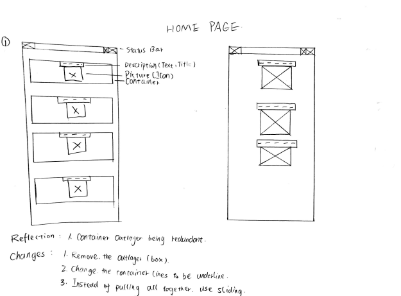 HOME PAGE
①
Status Bar
Description (Text-Title)
Picture (Icon)
Container
Reflection : 1. Container being redundant.
Changes : 1. Remove the (box).
2. Change the container lines to be underline.
3. Instead of pulling all together, use sliding.